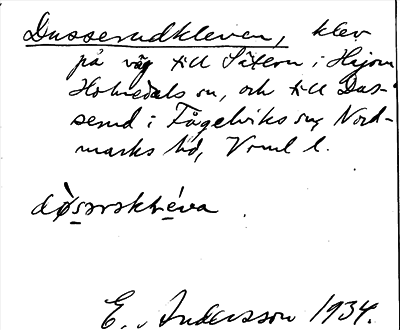 Dusserudkleven, klev
på väg till Sätern i Högen
Holmedals sn, och till Dus-
serud i Fågelviks sn, Nord-
marks hd, Vrml l.
E. Andersson 1934.